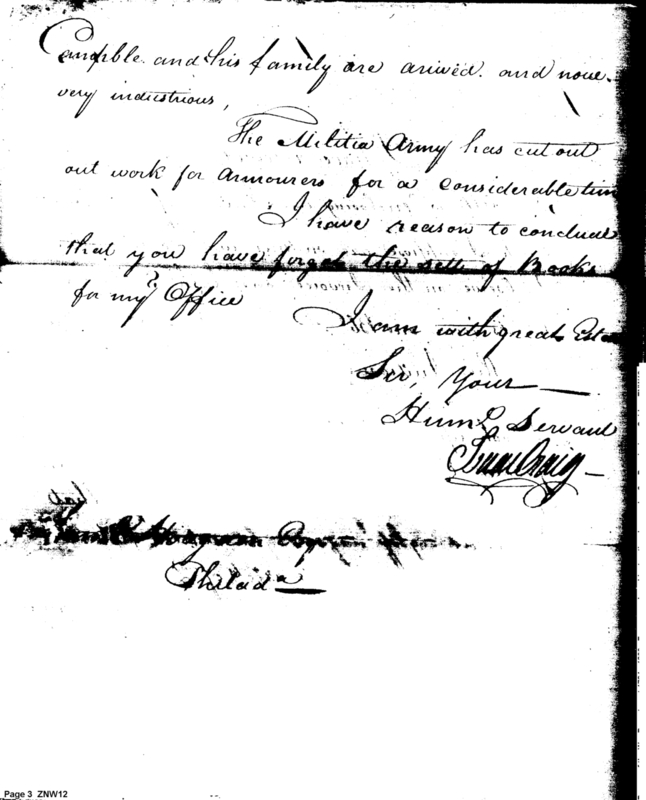 Campble. and his family are arived. and now
very industrious,
The Militia Army has cut out
out work for armourers for a considerable tim
I have reason to conclude
that you have forgot the sett of Books
for my Office
I am with great Este
Sir, Your —
Huml. Servant
Isaac Craig —
Hodgdon
Philada
Page 3 ZNW12